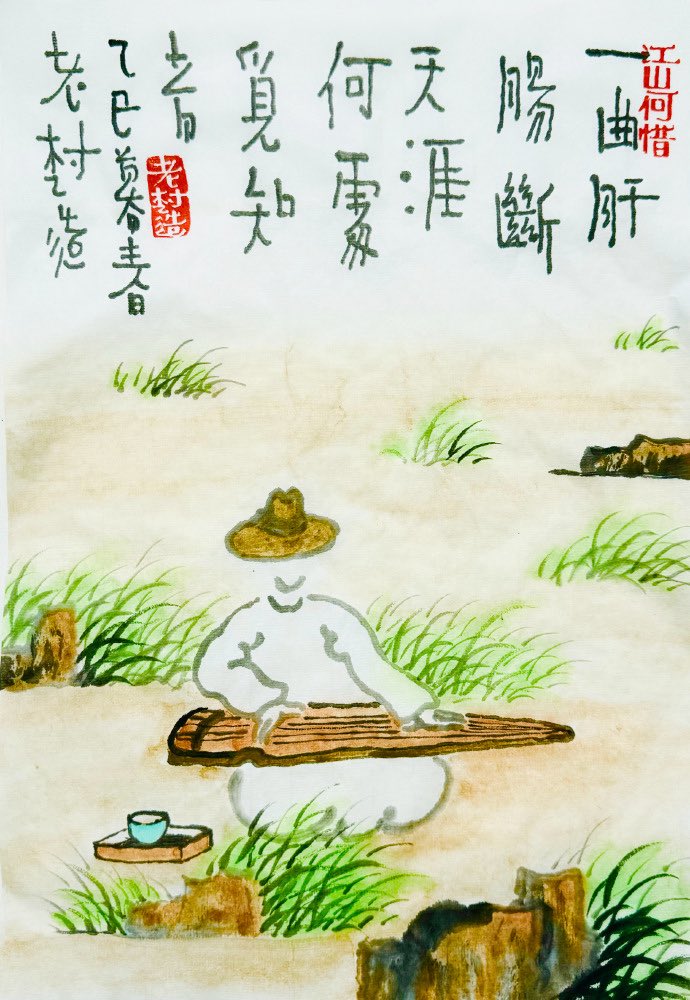 江山何惜
一曲肝
腸斷
天涯
何處
覓知
音
老村造
乙巳暮春
老村造